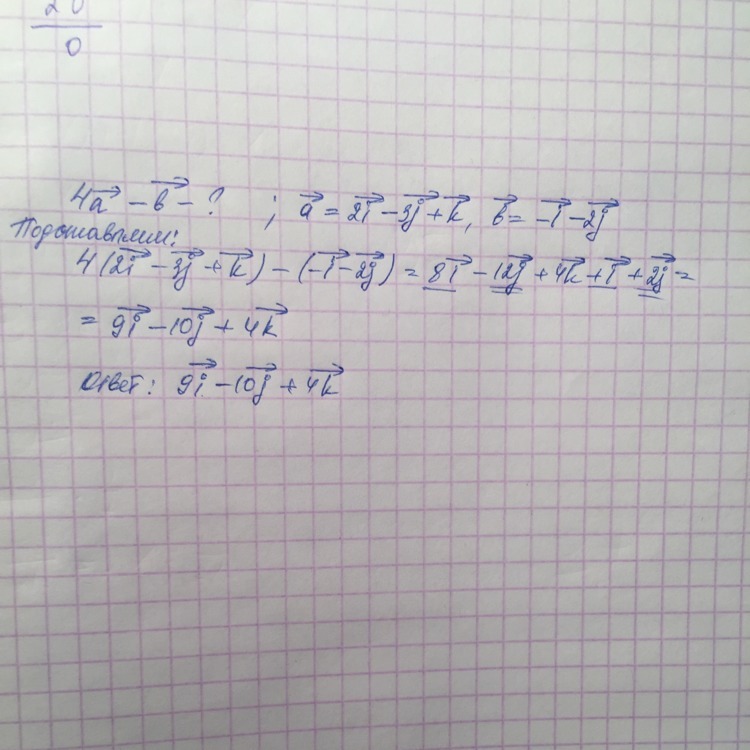 20
0
4a⃗ - b⃗ - ? ; a⃗ = 2i⃗ - 3j⃗ + k⃗, b⃗ = -i⃗ - 2j⃗
Подставляем:
4(2i⃗ - 3j⃗ + k⃗) - (-i⃗ - 2j⃗) = 8i⃗ - 12j⃗ + 4k⃗ + i⃗ + 2j⃗ =
= 9i⃗ - 10j⃗ + 4k⃗
Ответ: 9i⃗ - 10j⃗ + 4k⃗